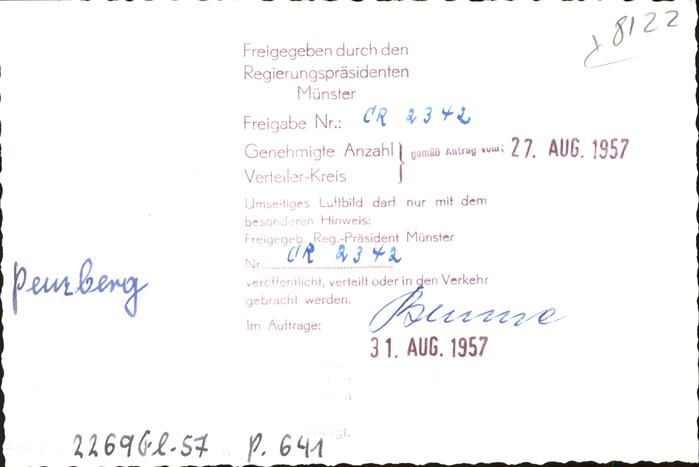 8122
Freigegeben durch den
Regierungspräsidenten
Münster
Freigabe Nr.: CR 2342
Genehmigte Anzahl } gemäß Antrag vom: 27. AUG. 1957
Verteiler-Kreis
Umseitiges Luftbild darf nur mit dem
besonderen Hinweis:
Freigegeb. Reg.-Präsident Münster
Nr. CR 2342
veröffentlicht, verteilt oder in den Verkehr
gebracht werden.
Penzberg
Im Auftrage:
31. AUG. 1957
P. 641